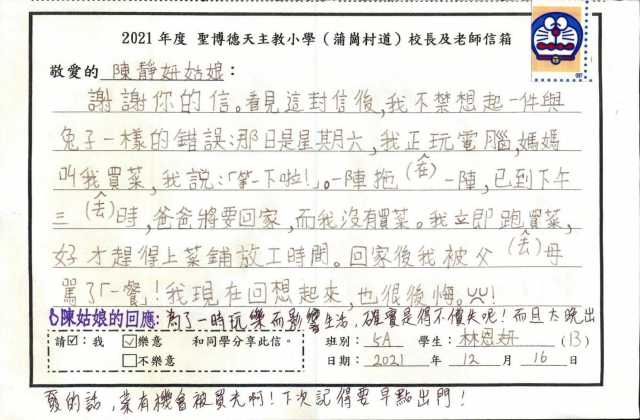 2021 年度 聖博德天主教小學（蒲崗村道）校長及老師信箱
敬愛的 陳靜妍姑娘：
謝謝你的信。看見這封信後，我不禁想起一件與
兔子一樣的錯誤：那日是星其月六，我正玩電腦，媽媽
叫我買菜，我說：「等一下啦！」。一陣拖（在）一陣，已到下午
三（去）時，爸爸將要回家，而我沒有買菜。我立即跑買菜，
好才趕得上菜鋪放工時間。回家後我被父（去）母
罵了「一餐！我現在回想起來，也很後悔。!
陳姑娘的回應：為了一時玩樂而影響生活，確實是得不償失呢！而且太晚出
請☑：我 ☑樂意 和同學分享此信。 班別： 5A 學生： 林恩妍 (13)
□不樂意 日期： 2021 年 12 月 16 日
發的話，菜有機會被買光啊！下次記得要早點出門！